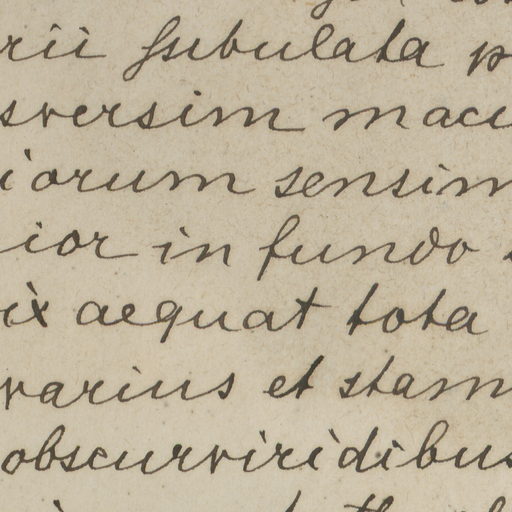 rii subulata p
sversim macu
iorum sensim
ior in fundo
ix aequat tota
varius et stam
obscurviridibus